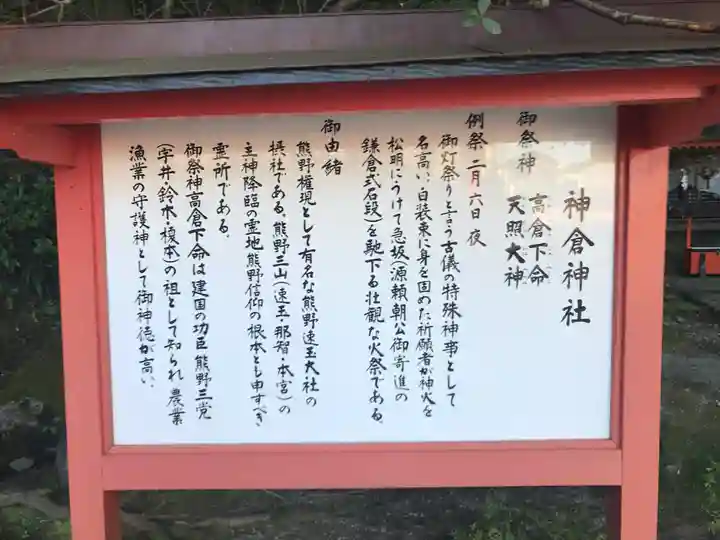 神倉神社
御祭神 高倉下命
天照大神
例祭 二月六日 夜
御灯祭りと言う古儀の特殊神事として
名高い、白装束に身を固めた祈願者が神火を
松明にうけて急坂(源頼朝公御寄進の
鎌倉式石段)を馳下る壮観な火祭である。
御由緒
熊野権現として有名な熊野速玉大社の
摂社である。熊野三山(速玉・那智・本宮)の
主神降臨の霊地熊野信仰の根本とも申すべき
霊所である。
御祭神高倉下命は建国の功臣熊野三党
(宇井・鈴木・榎本)の祖として知られ農業
漁業の守護神として御神徳が高い。